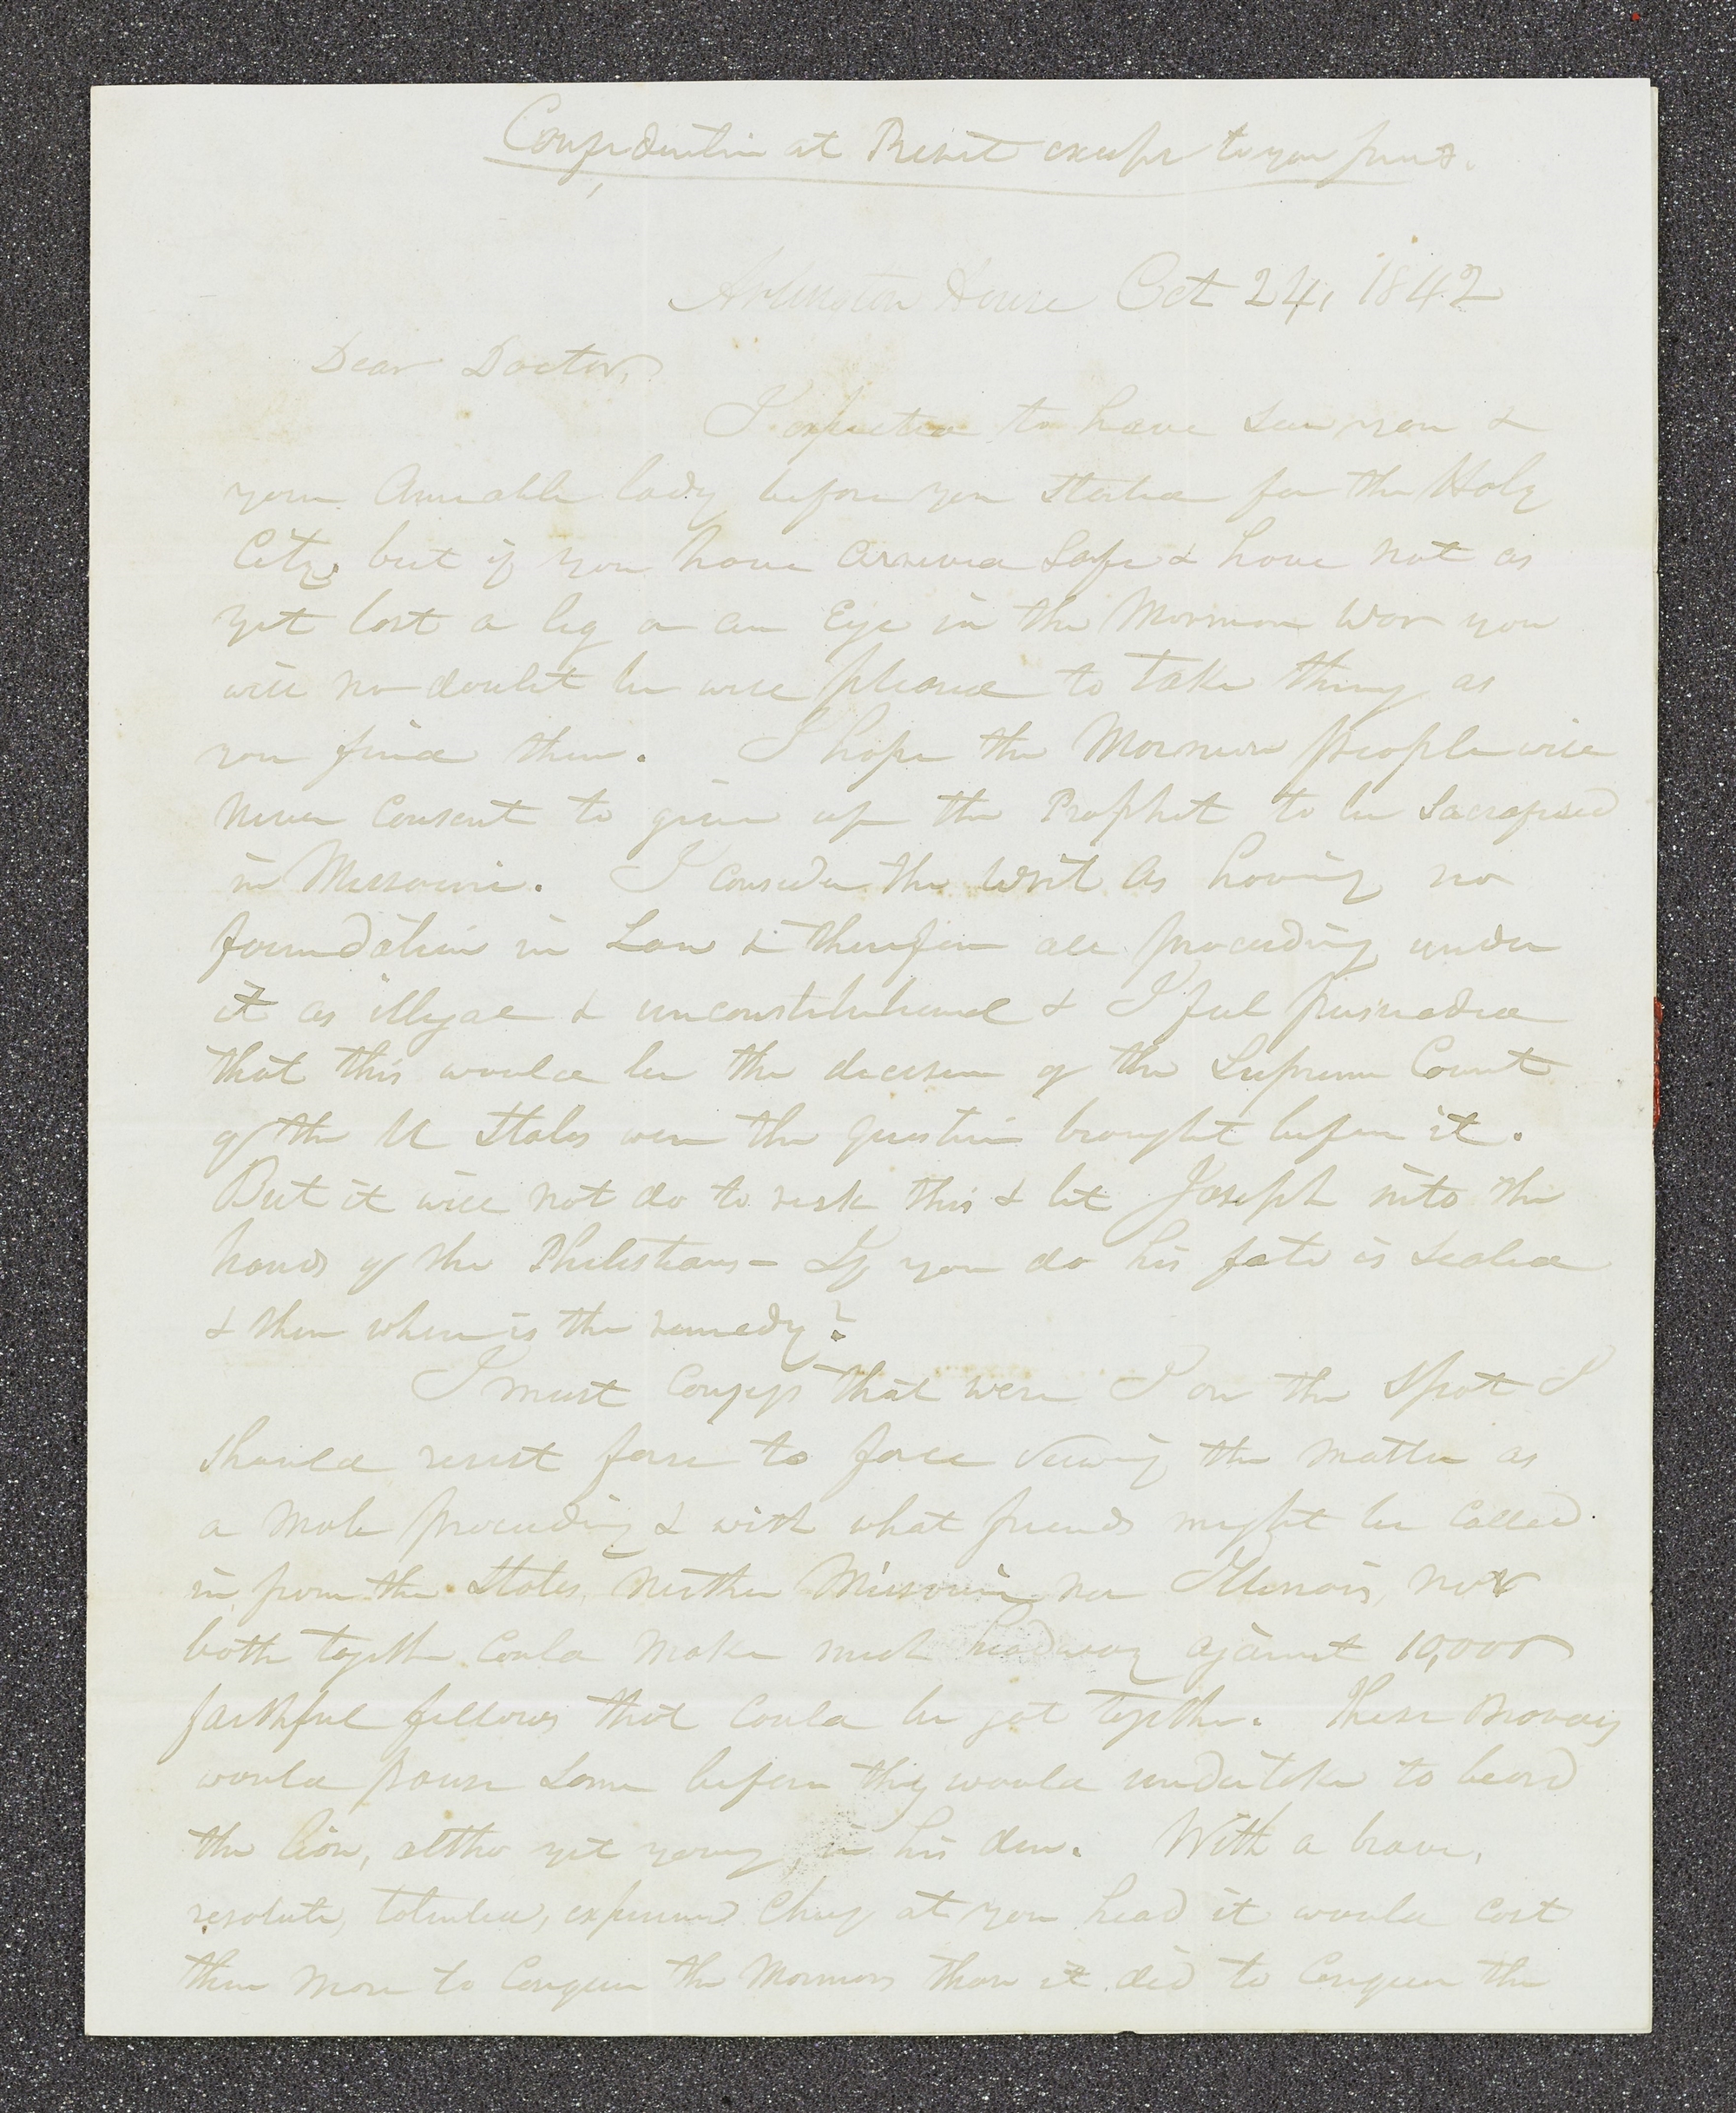 Confidential at Present except to your friends.
Arlington House Oct 24, 1842
Dear Doctor,
I expected to have seen you &
your Amiable lady before you started for the Holy
City, but if you have arrived safe & have not as
yet lost a leg or an Eye in the Mormon War you
will no doubt be well pleased to take things as
you find them. I hope the Mormon people will
never Consent to give up the Prophet to be Sacrafised
in Missouri. I consider the Writ as having no
foundation in Law & therefore all proceeding under
it as illegal & unconstitutional & I feel persuaded
that this would be the decision of the Supreme Court
of the U States were the question brought before it.
But it will not do to risk this & let Joseph into the
hands of the Philistians - If you do his fate is sealed
& then where is the remedy?
I must Confess that were I on the Spot I
should resist force to force viewing the matter as
a mob proceeding & with what friends might be called
in from the States, neither Missouri nor Illinois, nor
both together could make much headway against 10,000
faithful fellows that could be got together. These
would pause some before they would undertake to beard
the lion, altho yet young, in his den. With a brave,
resolute, talented, experienced Chief at your head it would cost
them more to Conquer the Mormons than it did to Conquer the